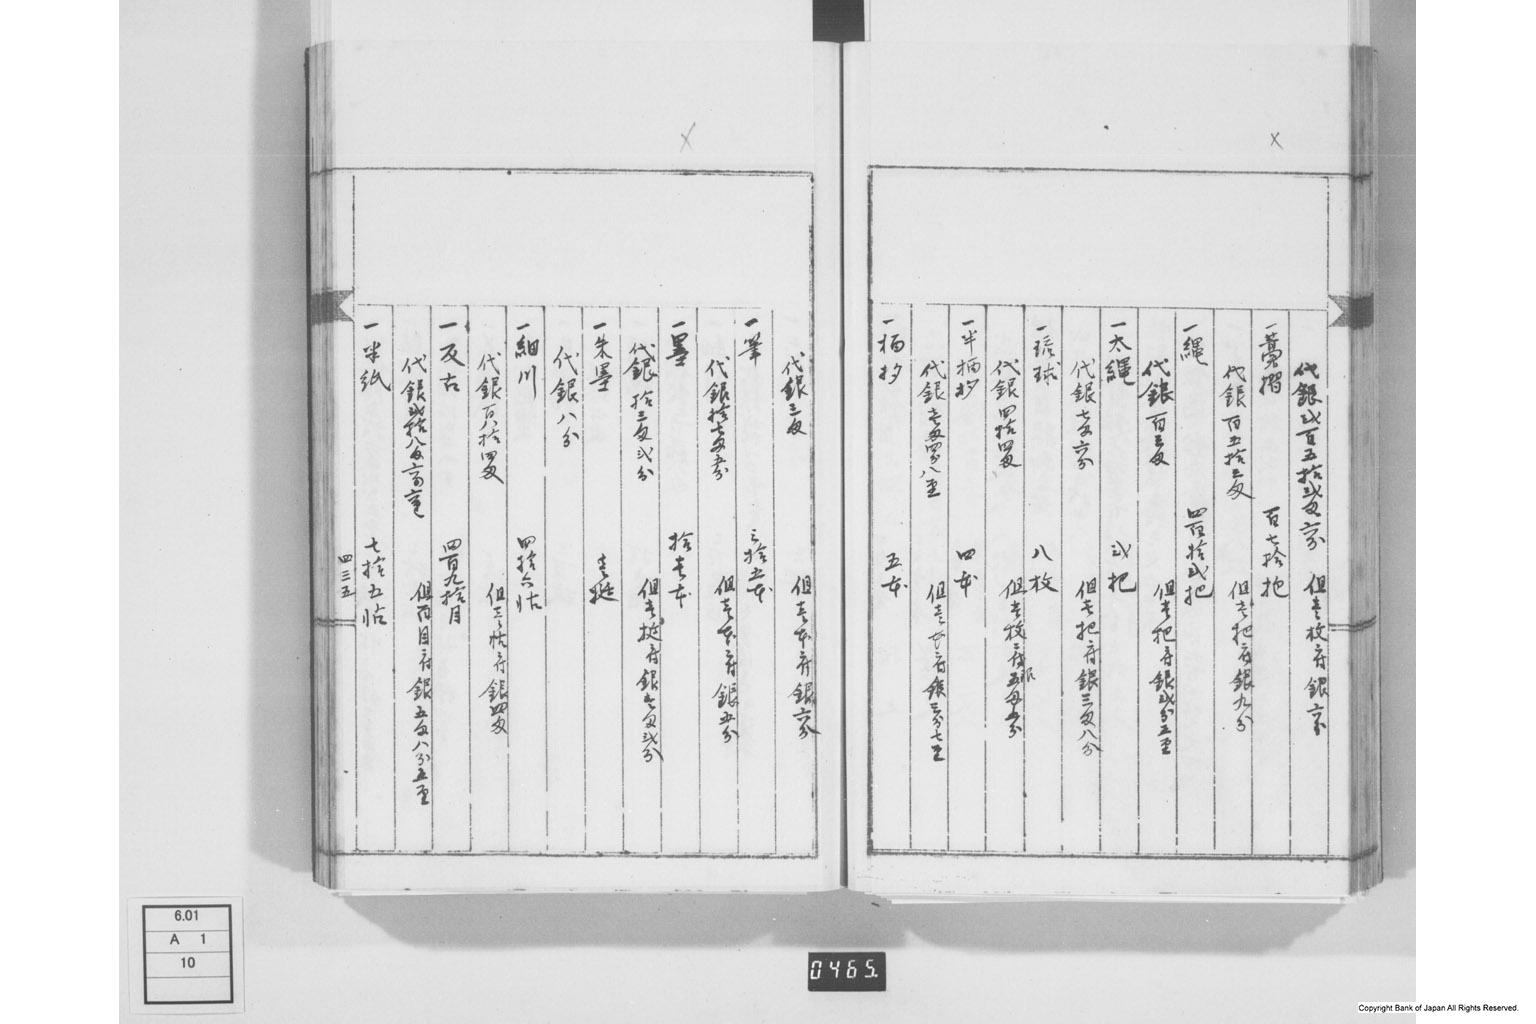 代銀弐百五拾弐匁六分 但壱枚ニ付銀六分
一藁摺 百七拾把
代銀百五拾三匁 但壱把ニ付銀九分
一縄 四百拾弐把
代銀百三匁 但壱把ニ付銀弐分五厘
一太縄 弐把
代銀七匁六分 但壱把ニ付銀三匁八分
一琉球 八枚
代銀四拾四匁 但壱枚ニ付銀五匁五分
一半柄杓 四本
代銀壱匁四分八厘 但壱本ニ付銀三分七厘
一柄杓 五本
代銀三匁 但壱本ニ付銀六分
一筆 三拾五本
代銀拾七匁五分 但壱本ニ付銀五分
一墨 拾壱本
代銀拾三匁弐分 但壱挺ニ付銀壱匁弐分
一朱墨 壱挺
代銀八分
一細川 四拾六帖
代銀百八拾四匁 但壱帖ニ付銀四匁
一反古 四百九拾目
代銀弐拾八匁六分六厘 但百目ニ付銀五匁八分五厘
一半紙 七拾五帖
四三五
6.01
A 1
10
0465.
Copyright Bank of Japan All Rights Reserved.